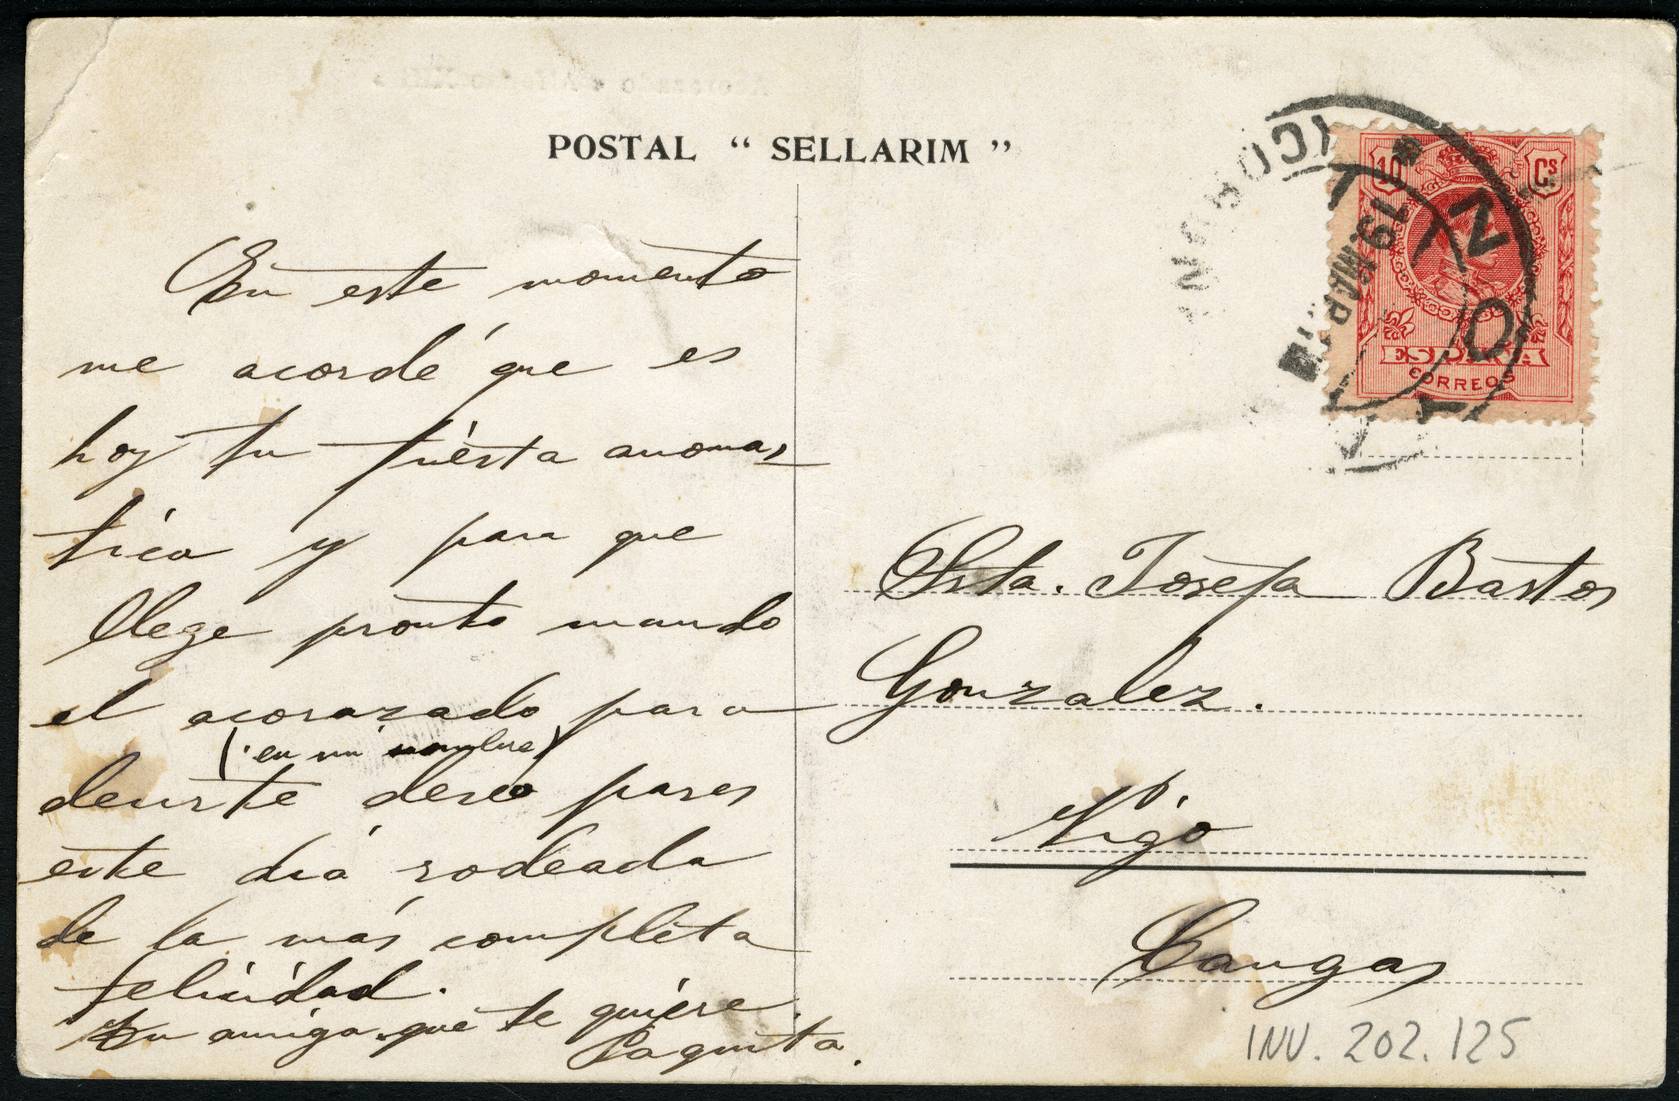 POSTAL “ SELLARIM ”
10 Cs
ESPAÑA
CORREOS
19 MAR
En este momento
me acordé que es
hoy tu fiésta anomas
tica y para que
llege pronto mando
el acorazado para
(en mi nombre)
decirte deseo pases
este diá rodeada
de la más completa
felicidad.
Tu amiga que te quiere.
Paquita.
Srta. Josefa Bastos
Gonzalez.
Vigo
Cangas
INV. 202.125